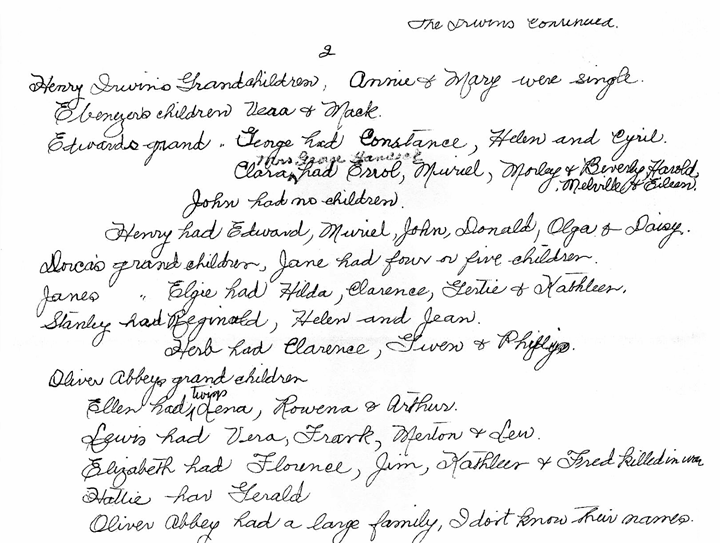 The Irwins Continued.
2
Henry Irwins Grandchildren, Annie & Mary were single.
Ebenezers children Vera & Mack.
Edwards grand " George had Constance, Helen and Cyril.
Mrs. George
Clara had Errol, Muriel, Morley & Beverly, Harold,
Melville & Eileen.
John had no children.
Henry had Edward, Muriel, John, Donald, Olga & Daisy.
Dorcas grand children, Jane had four or five children.
Janes " Elgie had Hilda, Clarence, Gertie & Kathleen.
Stanley had Reginald, Helen and Jean.
Herb had Clarence, Gwen & Phillip.
Oliver Abbeys grand children
twins
Ellen had Lena, Rowena & Arthur.
Lewis had Vera, Frank, Merton & Lew.
Elizabeth had Florence, Jim, Kathleen & Fred killed in war
Hattie had Gerald
Oliver Abbey had a large family, I don't know their names.